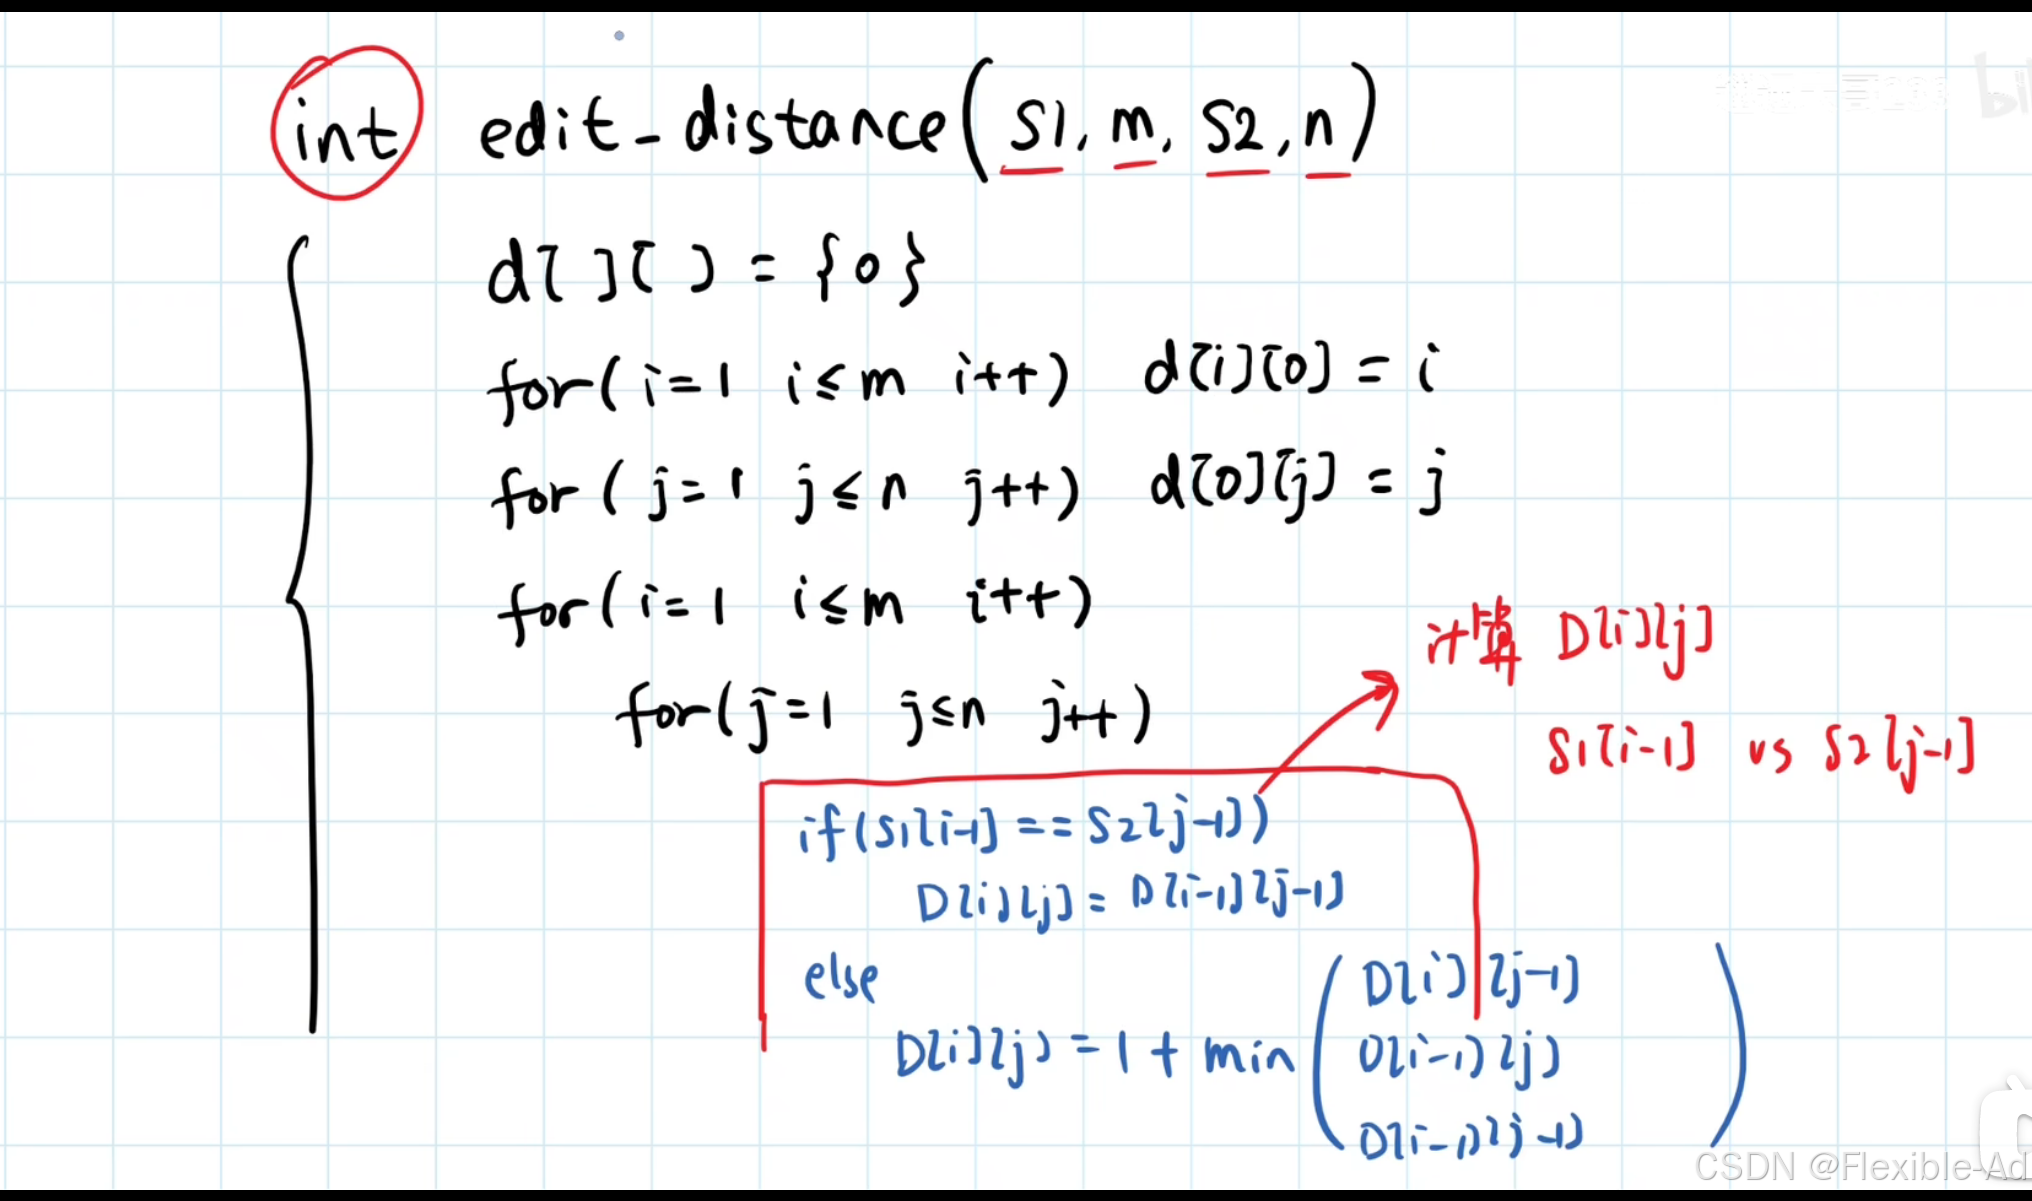 int edit_distance(S1, m, S2, n)
d[ ][ ] = {0}
for( i=1 i≤m i++) d[i][0] = i
for( j=1 j≤n j++) d[0][j] = j
for( i=1 i≤m i++)
计算 D[i][j]
for(j=1 j≤n j++)
S1[i-1] vs S2[j-1]
if(S1[i-1] == S2[j-1])
D[i][j] = D[i-1][j-1]
else
D[i][j] = 1 + min
D[i][j-1]
D[i-1][j]
D[i-1][j-1]
CSDN @Flexible-Ad